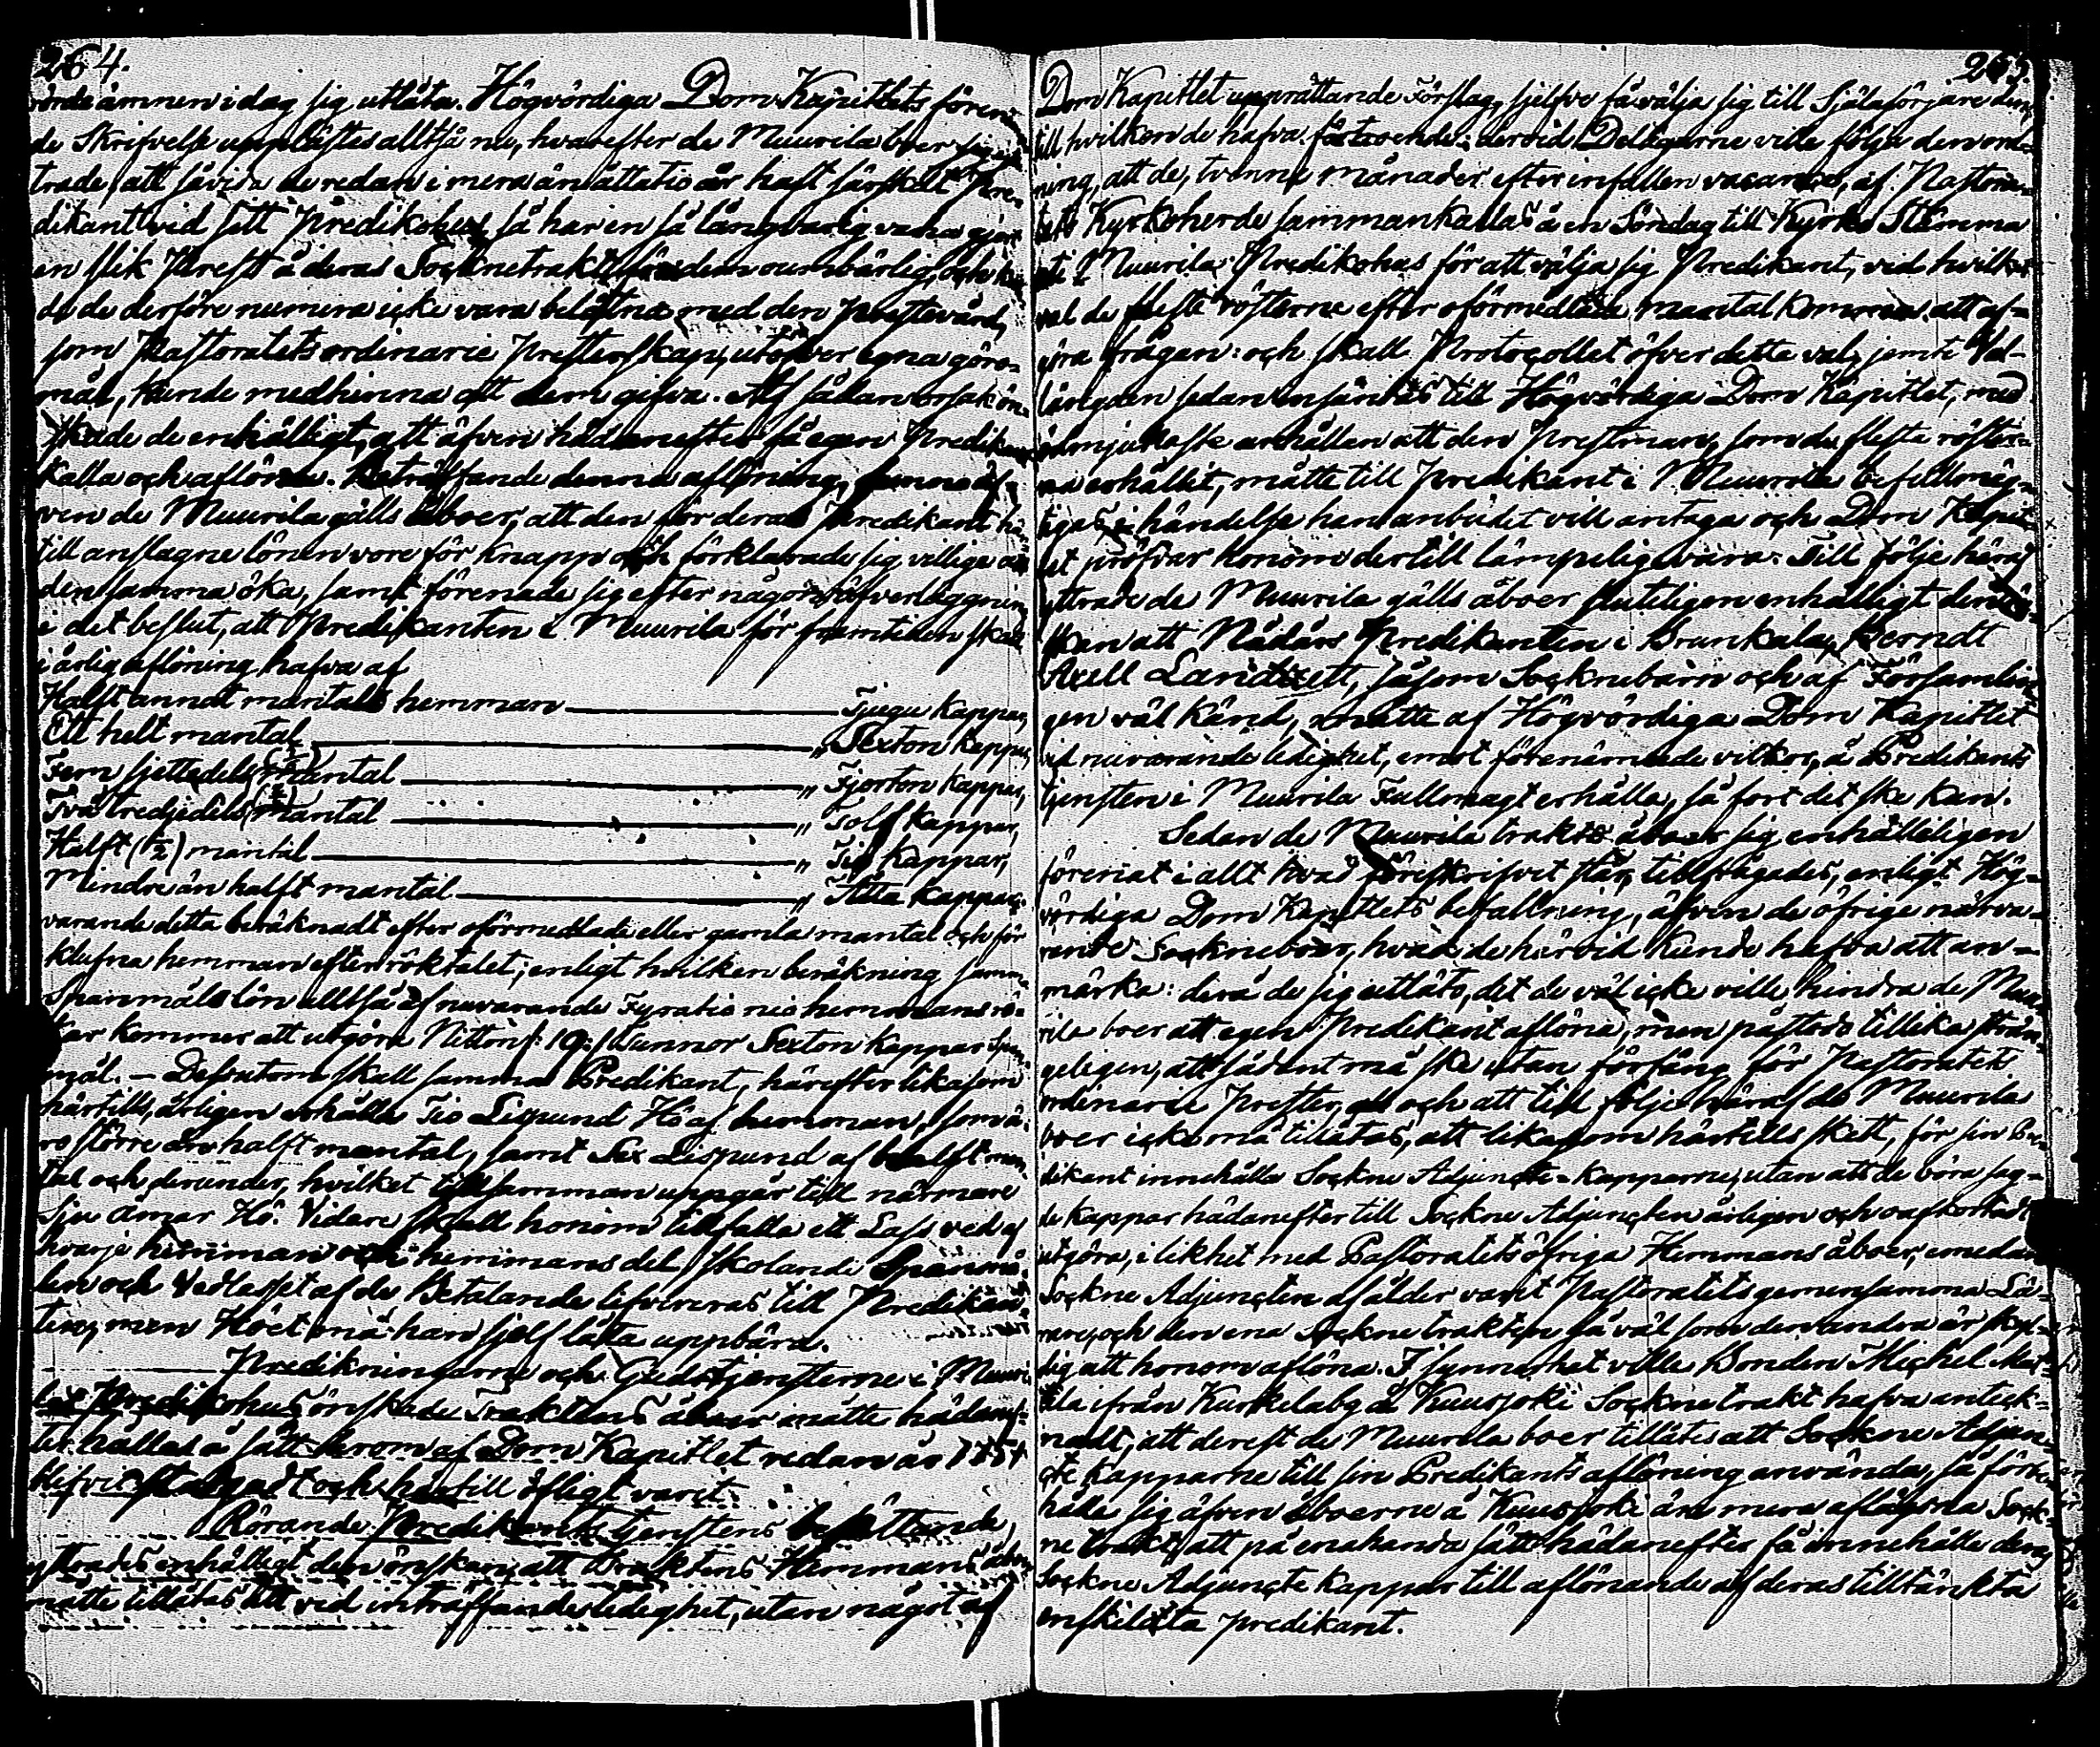 264.
rörde ämnen i dag sig utlåta. Högvördiga Dom Kapitlets
de Skrifvelse upplästes alltså nu, hvarefter de Muurila boer
trade, att såvida de redan i mera än åttatio år haft särskilt Pre-
dikant vid sitt Predikohus, så har en så långvarig vana gjort
en slik Prest å deras Socknetrakt oumbärlig, och
de de derföre numera icke vara belåtna med den prestvård,
som Pastoratets ordinarie Presterskap, utöfver egna göro-
mål, kunde medhinna att dem gifva. Af sådan orsak ön-
skade de enhälligt, att äfven hädanefter få egen Predikant
kalla och aflöna. Beträffande denna aflöning, funno äf-
ven de Muurila gälls åboer, att den för deras Predikant
till anslagne lönen vore för knapp och förklarade sig villige att
densamma öka, samt förenade sig efter någon öfverläggning
i det beslut, att Predikanten i Muurila för framtiden skall
i årlig aflöning hafva af
Halft annat mantals hemman — Tjugu kappar,
Ett helt mantal — „ Sexton kappar,
Fem sjettedels mantal — „ Fjorton kappar,
Två tredjedels mantal — „ Tolf kappar,
Halft (1/2) mantal — „ Tio kappar,
Mindre än halft mantal — „ Åtta kappar,
varande detta beräknadt efter oförmedlade eller gamla mantal och för
klufna hemman efter röktalet; enligt hvilken beräkning
Spanmåls lön alltså af nuvarande Fyratio nio hemmans rö-
kar kommer att utgöra Nitton /: 19 :/ Tunnor Sexton kappar
mål. — Dessutom skall samma Predikant, härefter likasom
härtills, årligen erhålla Tio Lispund Hö af hemman, som ä-
ro större än halft mantal, samt Sex Lispund af halft man-
tal och derunder, hvilket tillsamman uppgår till närmare
Sju åmar Hö. Vidare skall honom tillfalla ett Lass ved af
hvarje hemman och hemmansdel, skolande Spanmå-
len och Vedlasset af de Betalande lefvereras till Predikan-
ten, men Höet må han sjelf låta uppbära.
Predikningarne och Gudstjensterne i Muuri-
la Predikohus önskade Traktens åboer måtte hädanef-
ter hållas å sätt derom af Dom Kapitlet redan år
blifvit stadgadt och härtill öfligt varit.
Rörande Predikants tjenstens besättande,
yttrades enhälligt den önskan, att Traktens Hemmans åboer
måtte tillåtas att vid inträffande ledighet, utan något af
265.
Dom Kapitlet upprättande Förslag, sjelfve få välja sig till Själasörjare den,
till hvilken de hafva förtroende: dervid Delägarne ville följa den ord-
ning, att de, tvenne månader efter infallen vacance, af Pastora-
tets Kyrkoherde sammankallas å en Söndag till Kyrko Stämma
uti Muurila Predikohus för att välja sig Predikant, vid hvilket
val de fleste rösterne efter oförmedlade mantal komma att af-
göra frågan: och skall Protocollet öfver detta val, jemte Val-
längden sedan insändas till Högvördiga Dom Kapitlet, med
ödmjukaste anhållan att den Prestman, som de flesta röster-
na erhållit, måtte till Predikant i Muurila befullmäg-
tigas, i händelse han anbudet vill antaga och Dom Kapit-
let pröfvar honom dertill lämpelig vara. Till följe häraf
yttrade de Muurila gälls åboer slutligen enhälligt den ön-
skan att Nådårs Predikanten i Brunkala, Berndt
Axell Landzett, såsom Socknebarn och af Församlin-
gen väl känd, måtte af Högvördiga Dom Kapitlet
vid nuvarande ledighet, emot förenämnde vilkor, å Predikants
tjensten i Muurila Fullmagt erhålla, så fort det ske kan.
Sedan de Muurila trakts åboer sig enhälleligen
förenat i allt hvad föreskrifvet står, tillfrågades, enligt Hög-
vördiga Dom Kapitlets befallning, äfven de öfrige närva-
rande Sockneboer, hvad de härvid kunde hafva att an-
märka: derå de sig utläto, det de väl icke ville hindra de Muu-
rila boer att egen Predikant aflöna, men påstodo tillika
geligen, att sådant må ske utan förfång för Pastoratets
ordinarie Prester, och att till följe häraf de Muurila
boer icke må tillåtas, att likasom härtills skett, för sin Pre-
dikant innehålla Sockne Adjuncte-kapparne, utan att de böra sag-
de kappar hädanefter till Sockne Adjuncten årligen och oafkortadt
utgöra, i likhet med Pastoratets öfriga Hemmans åboer, emedan
Sockne Adjuncten af ålder varit Pastoratets gemensamma Lä-
rare, och den ena Sockne trakten så väl som den andra är skyl-
dig att honom aflöna. I synnerhet ville Bonden Michel Mat-
tila ifrån Kurkela by å Kuusjoki Sockne trakt hafva anteck-
nadt, att derest de Muurila boer tillåtes att Sockne Adjun-
cte kapparne till sin Predikants aflöning använda, så förbe-
hålla sig äfven åboerne å Kuusjoki än mera aflägsna Sock-
ne trakt, att på enahanda sätt hädanefter få innehålla deras
Sockne Adjuncte kappar till aflönande af deras tilltänkta
enskildta predikant.